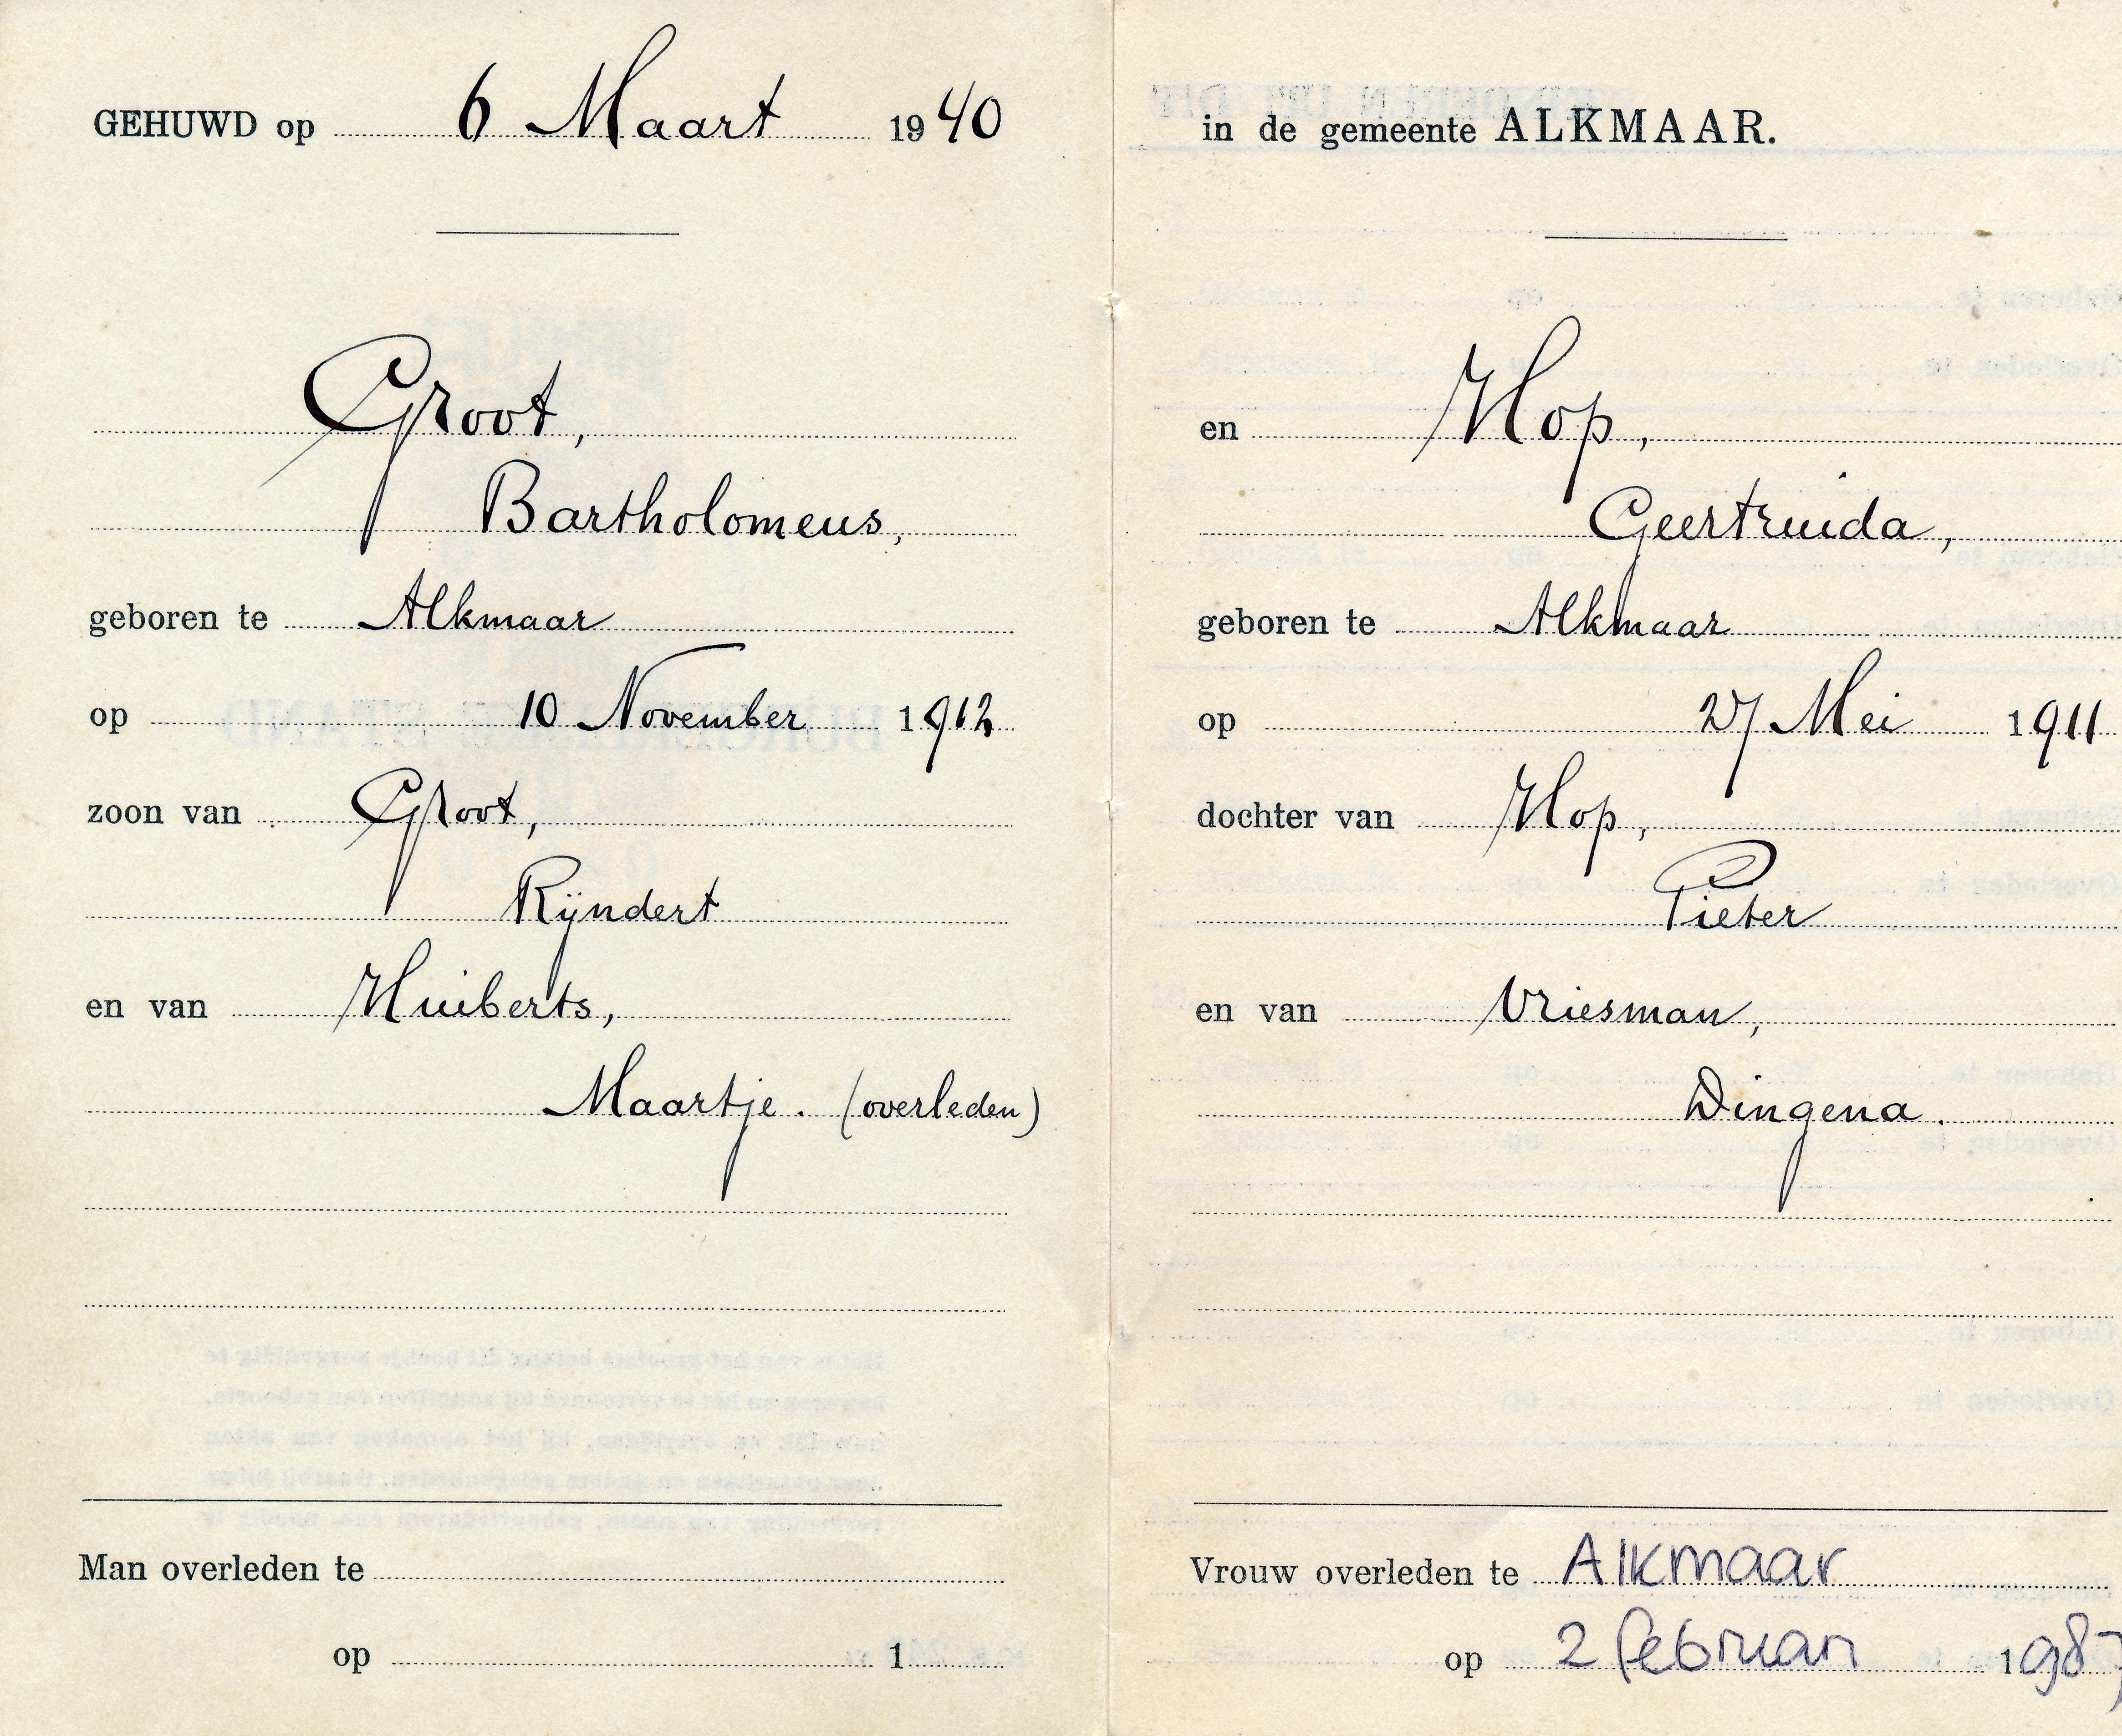 GEHUWD op 6 Maart 1940
Groot,
Bartholomeus,
geboren te Alkmaar
op 10 November 1912
zoon van Groot,
Rijndert
en van Huiberts,
Maartje. (overleden)
Man overleden te
op 1
in de gemeente ALKMAAR.
en Hop,
Geertruida,
geboren te Alkmaar
op 27 Mei 1911
dochter van Hop,
Pieter
en van Vriesman,
Dingena.
Vrouw overleden te Alkmaar
op 2 februari 1987